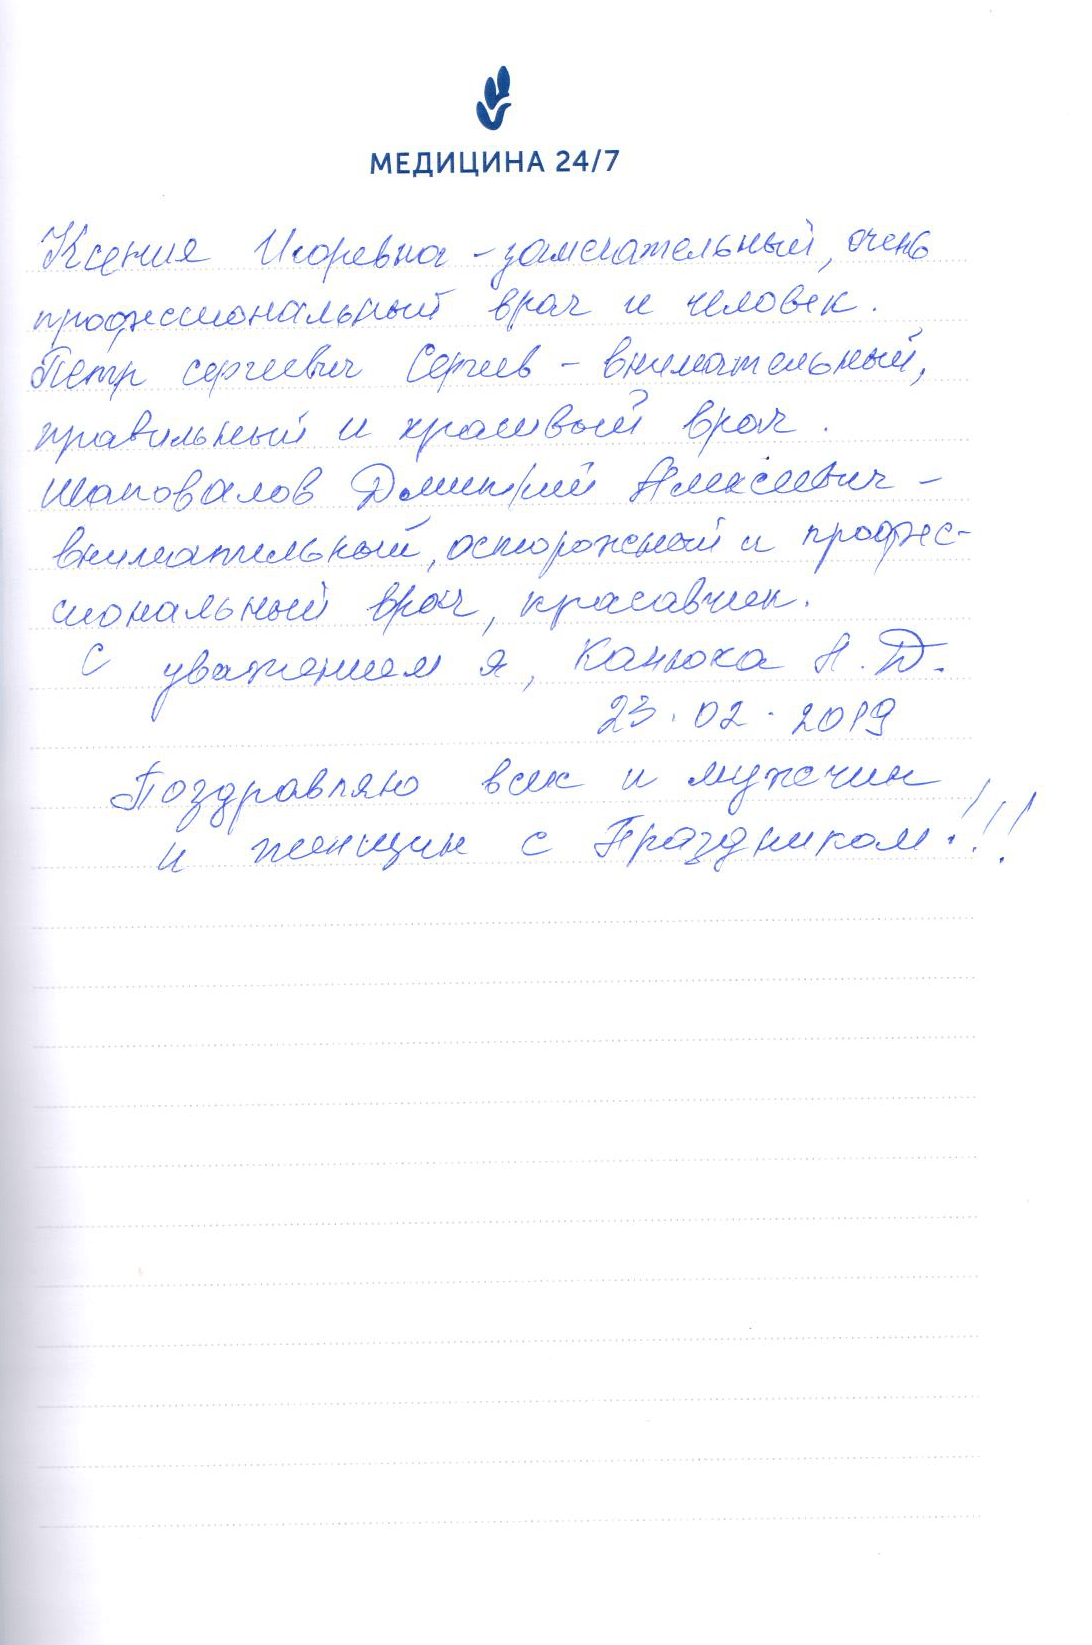 МЕДИЦИНА 24/7
Ксения Игоревна - замечательный, очень
профессиональный врач и человек.
Пётр сергеевич Сергеев - внимательный,
правильный и красивый врач.
Шаповалов Дмитрий Алексеевич -
внимательный, осторожный и профес-
сиональный врач, красавчик.
С уважением я, Канюка Н.Д.
23.02.2019
Поздравляю всех и мужчин
и женщин с Праздником!!!